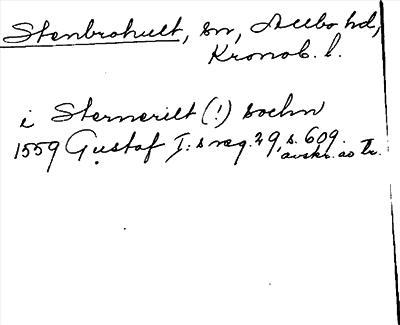 Stenbrohult, sn, Allbo hd,
Kronob. l.
i Sternerilt (!) sochn
1559 Gustaf I:s reg. 29, s. 609.
avskr. ao Tr.